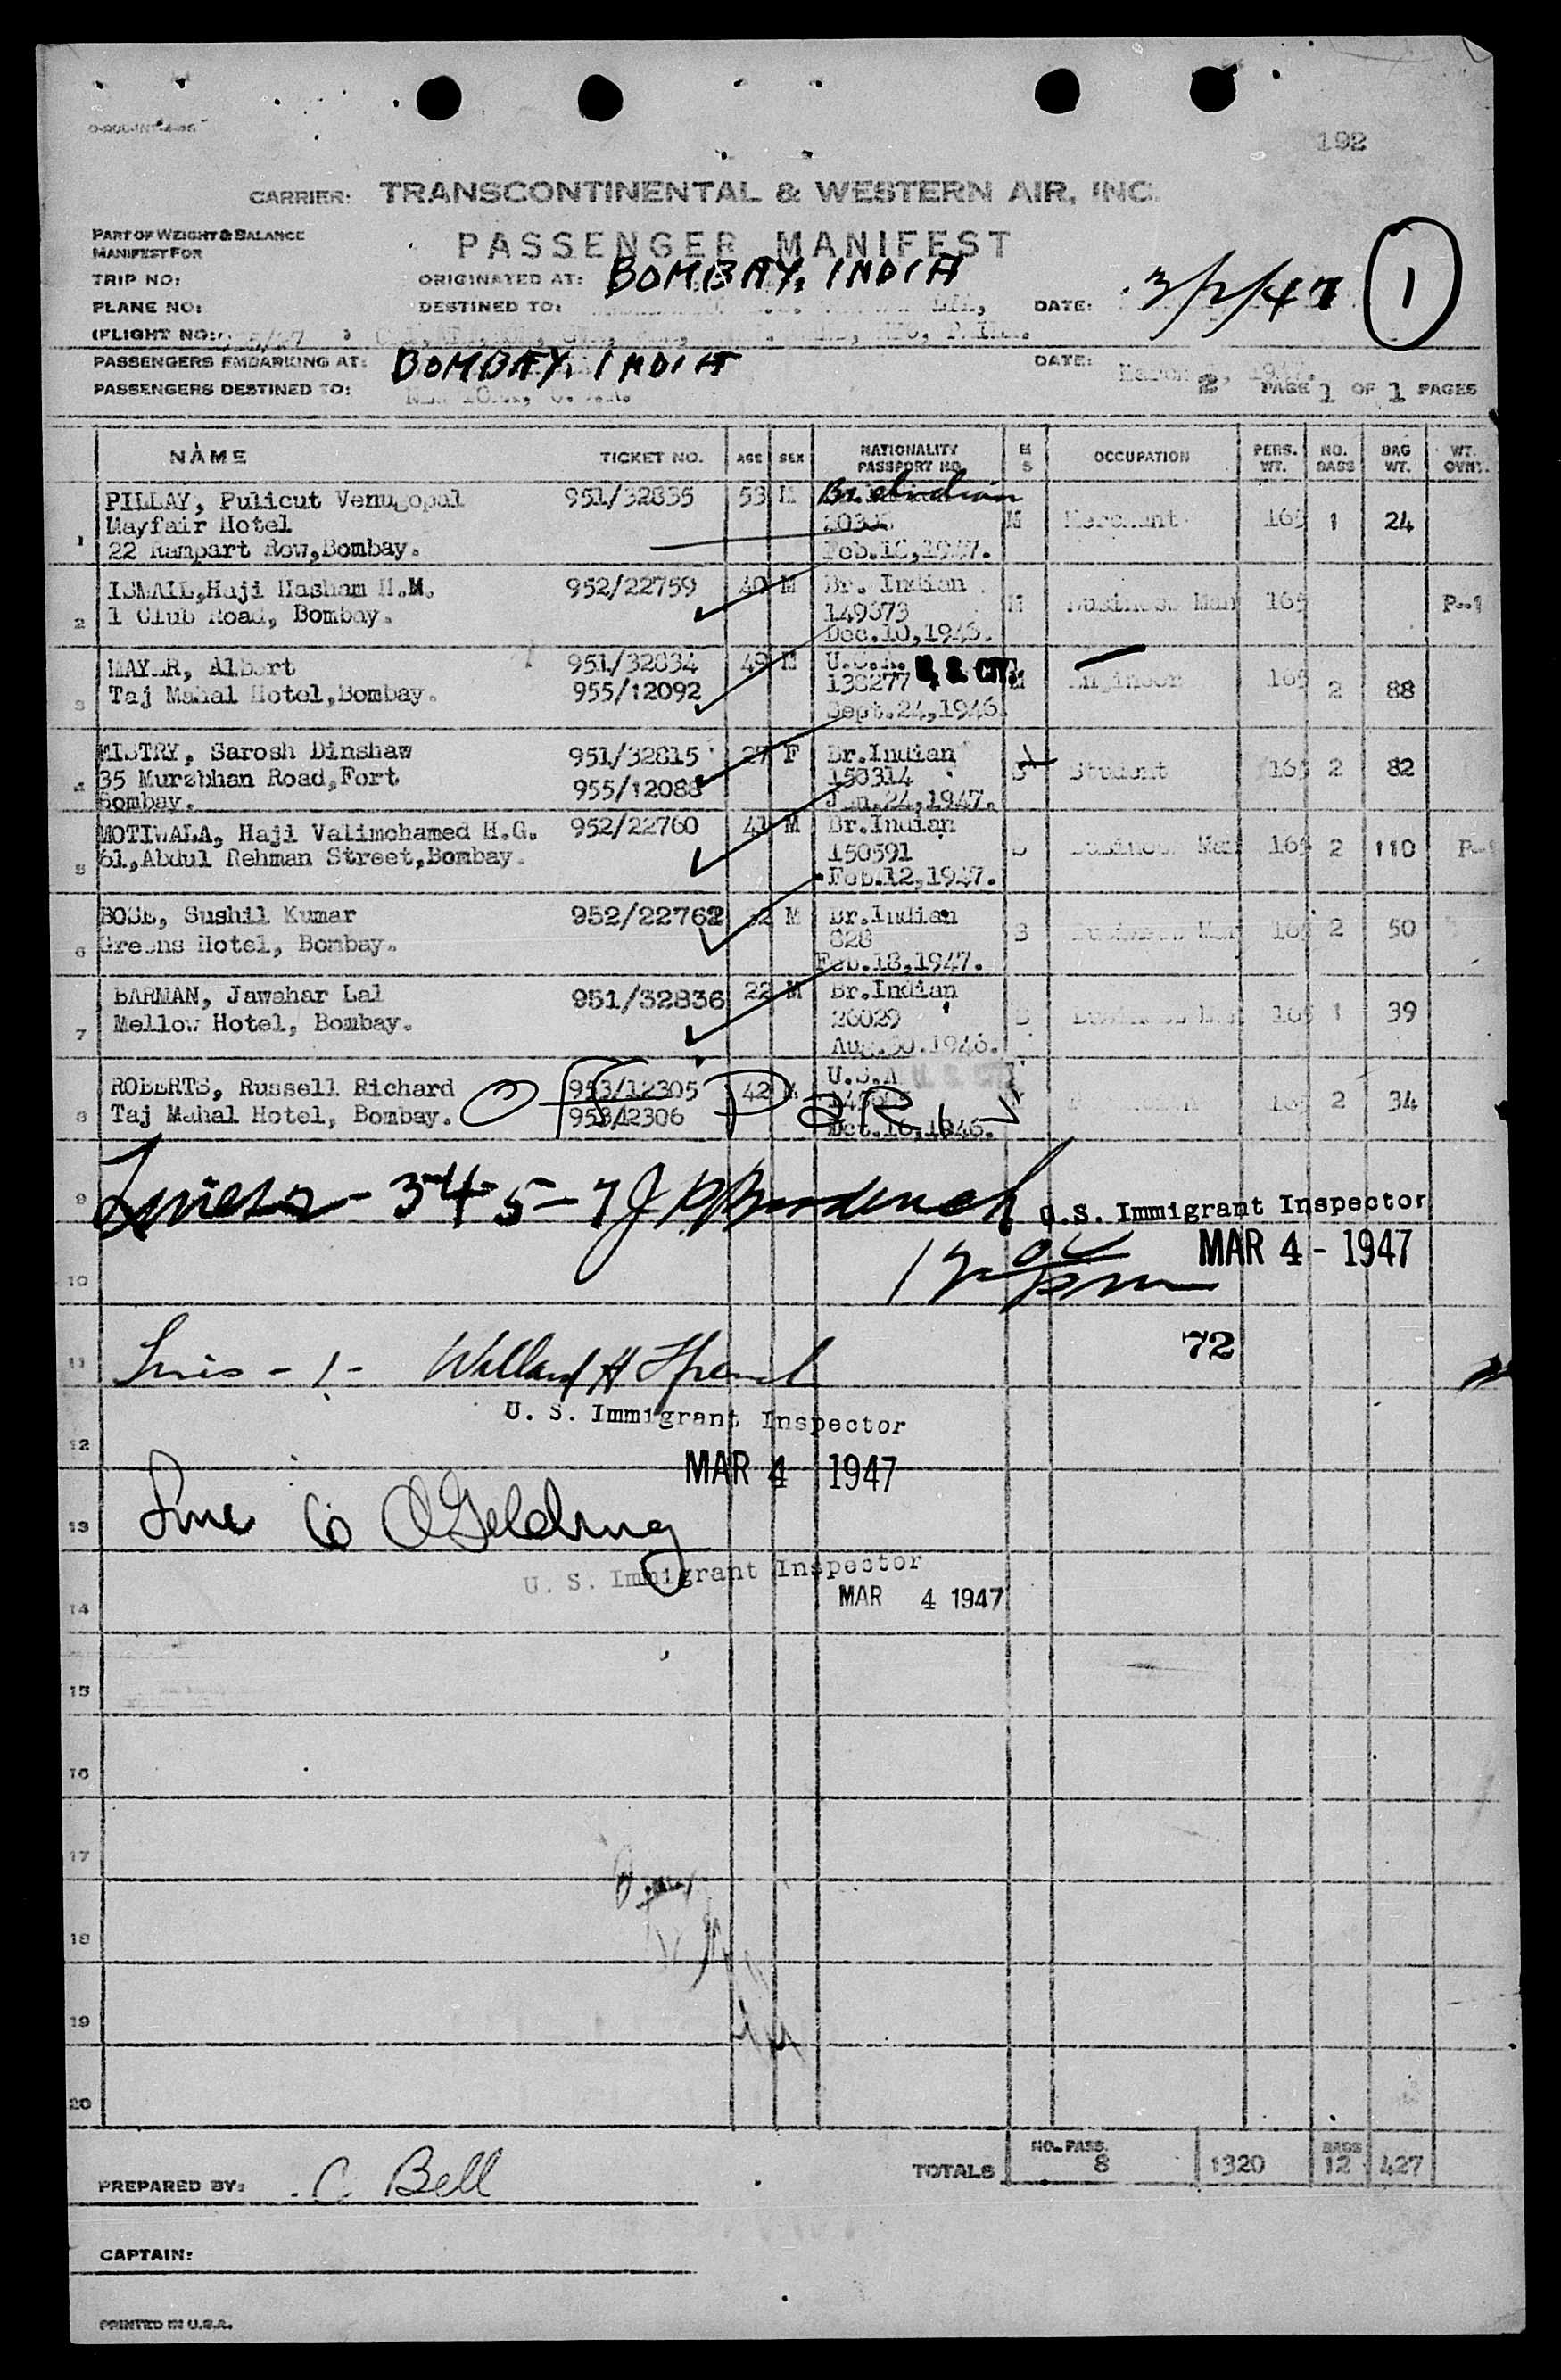 192
CARRIER: TRANSCONTINENTAL & WESTERN AIR, INC.
PART OF WEIGHT & BALANCE
MANIFEST FOR
PASSENGER MANIFEST
TRIP NO: ORIGINATED AT: BOMBAY, INDIA
PLANE NO: DESTINED TO: DATE: 3/2/47 1
(FLIGHT NO:
PASSENGERS EMBARKING AT: BOMBAY, INDIA DATE: March 2, 1947.
PASSENGERS DESTINED TO: NEW YORK, U.S.A. PAGE 1 OF 1 PAGES
NAME TICKET NO. AGE SEX NATIONALITY PASSPORT NO. M S OCCUPATION PERS. WT. NO. BAGS BAG WT. WT. OVNT.
1 PILLAY, Pulicut Venugopal 951/32835 53 M Br. Indian
Mayfair Hotel M Merchant 165 1 24
22 Rampart Row,Bombay. Feb.18,1947.
2 ISMAIL,Haji Hasham H.M. 952/22759 40 M Br. Indian
1 Club Road, Bombay. 149673 M Business Man 165
Dec.10,1946.
3 MAYER, Albert 951/32834 49 M U.S.A. U. S. CIT.
Taj Mahal Hotel,Bombay. 955/12092 138277 M Engineer 165 2 88
Sept.24,1946
4 MISTRY, Sarosh Dinshaw 951/32815 27 F Br.Indian
35 Murzbhan Road,Fort 955/12088 150314 S Student 165 2 82
Bombay. Jan.24,1947.
5 MOTIWALA, Haji Valimohamed H.G. 952/22760 41 M Br.Indian
61,Abdul Rehman Street,Bombay. 150591 Business Man 165 2 110
Feb.12,1947.
6 BOSE, Sushil Kumar 952/22762 32 M Br.Indian
Greens Hotel, Bombay. 828 S Business Man 165 2 50
Feb.18,1947.
7 BARMAN, Jawahar Lal 951/32836 22 M Br.Indian
Mellow Hotel, Bombay. 26029 S Business Man 165 1 39
Aug.30.1946.
8 ROBERTS, Russell Richard 953/12305 42 M U.S.A U. S. CIT.
Taj Mahal Hotel, Bombay. 953/12306 165 2 34
Oct.16,1946.
Off Paris
9 Lines 3-4-5-7 U.S. Immigrant Inspector
MAR 4 - 1947
10
72
11 Lines - 1 - Willard H French
U. S. Immigrant Inspector
12
MAR 4 1947
13 Line 6 O Gelding
U. S. Immigrant Inspector
MAR 4 1947
14
15
16
17
18
19
20
TOTALS NO. PASS. 8 1320 BAGS 12 427
PREPARED BY: C Bell
CAPTAIN:
PRINTED IN U.S.A.